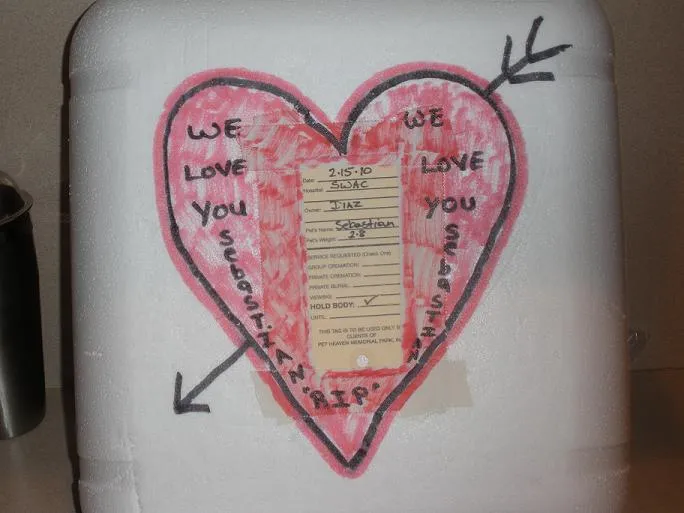 WE
LOVE
YOU
SEBASTIAN
WE
LOVE
YOU
SEBASTIAN
"RIP"
Date: 2·15·10
Hospital: SWAC
Owner: DIAZ
Pet's Name: Sebastian
Pet's Weight: 2.8
SERVICE REQUESTED (Check One)
GROUP CREMATION:
PRIVATE CREMATION:
PRIVATE BURIAL:
VIEWING:
HOLD BODY: ✓
UNTIL:
THIS TAG IS TO BE USED ONLY
CLIENTS OF
PET HEAVEN MEMORIAL PARK,